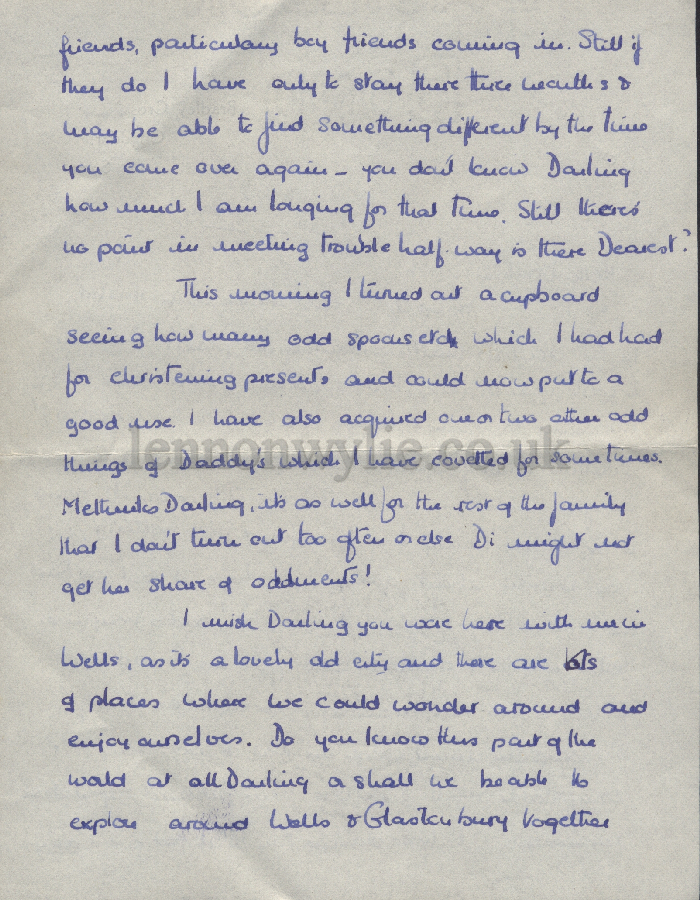 friends, particularly boy friends coming in. Still if
they do I have only to stay there three months &
may be able to find something different by the time
you come over again – you don't know Darling
how much I am longing for that time. Still there's
no point in meeting trouble half-way is there Dearest?
This morning I turned out a cupboard
seeing how many odd spoons etc which I had had
for christening presents and could now put to a
good use. I have also acquired one or two other odd
things of Daddy's which I have covetted for sometimes.
lennonwylie.co.uk
Darling, its as well for the rest of the family
that I don't turn out too often or else Di might not
get her share of oddments!
I wish Darling you were here with me in
Wells, as its a lovely old city and there are lots
of places where we could wonder around and
enjoy ourselves. Do you know this part of the
world at all Darling or shall we be able to
explore around Wells & Glastonbury together